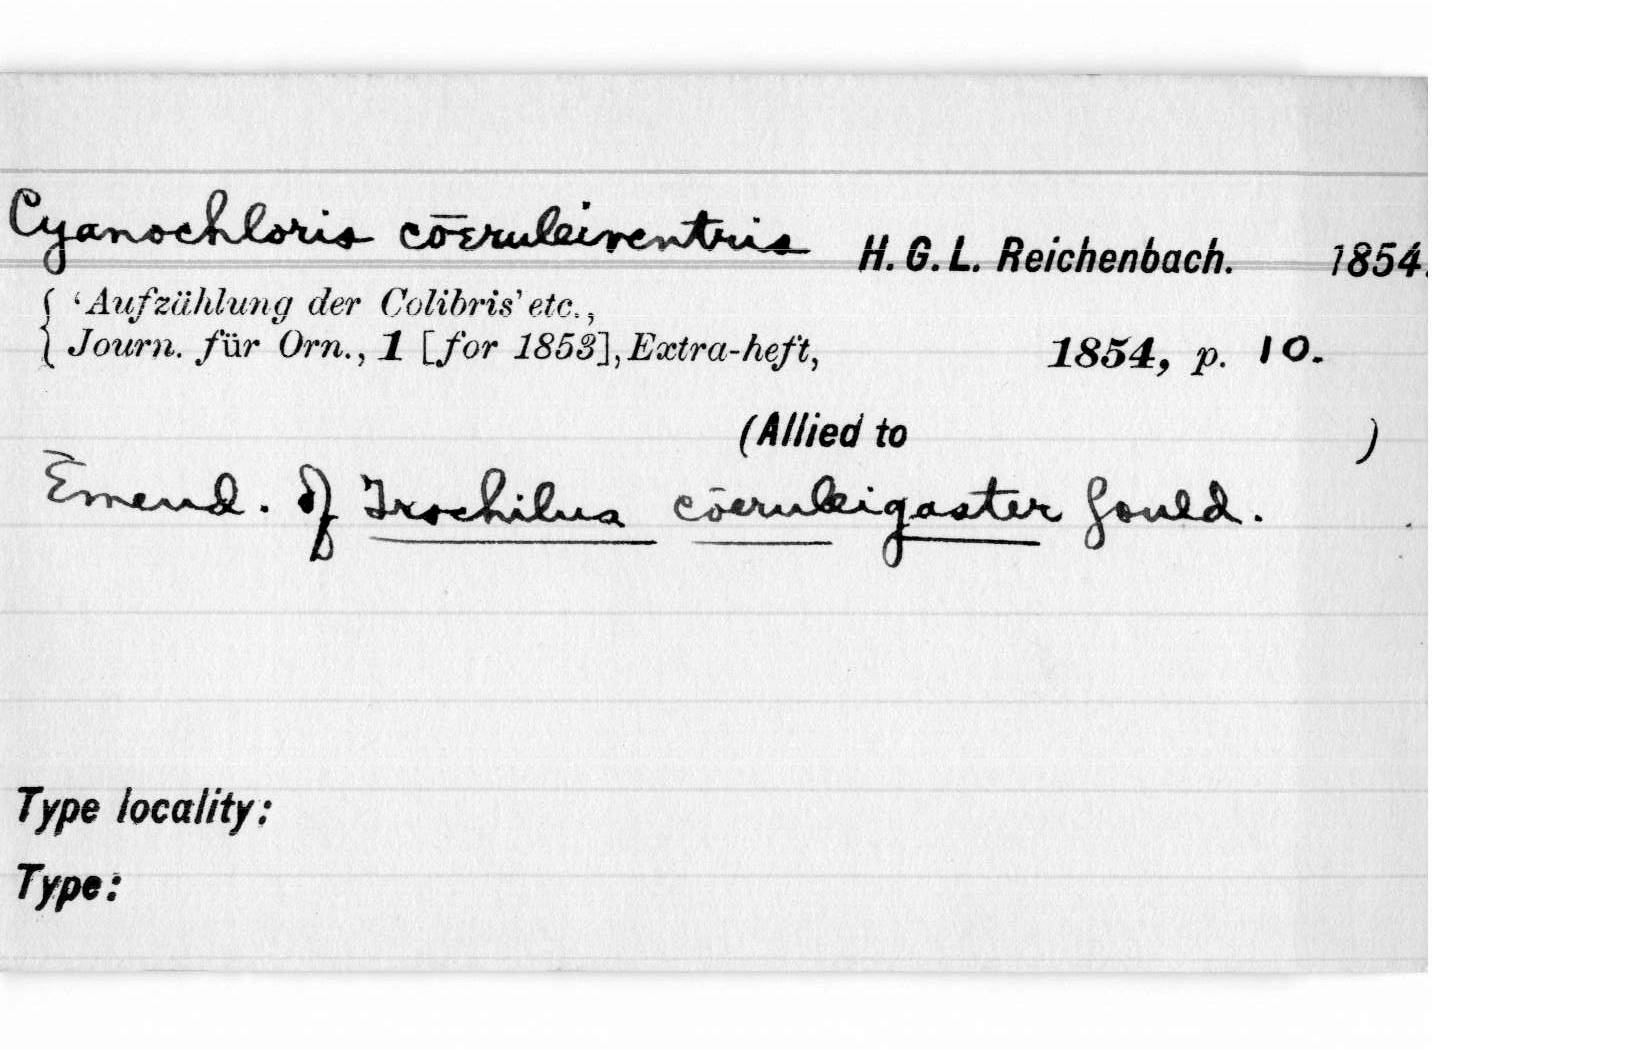 Cyanochloris cōeruleiventris H. G. L. Reichenbach. 1854.
{ 'Aufzählung der Colibris' etc.,
{ Journ. für Orn., 1 [for 1853], Extra-heft, 1854, p. 10.
(Allied to )
Emend. of Trochilus cōeruleigaster Gould.
Type locality:
Type: